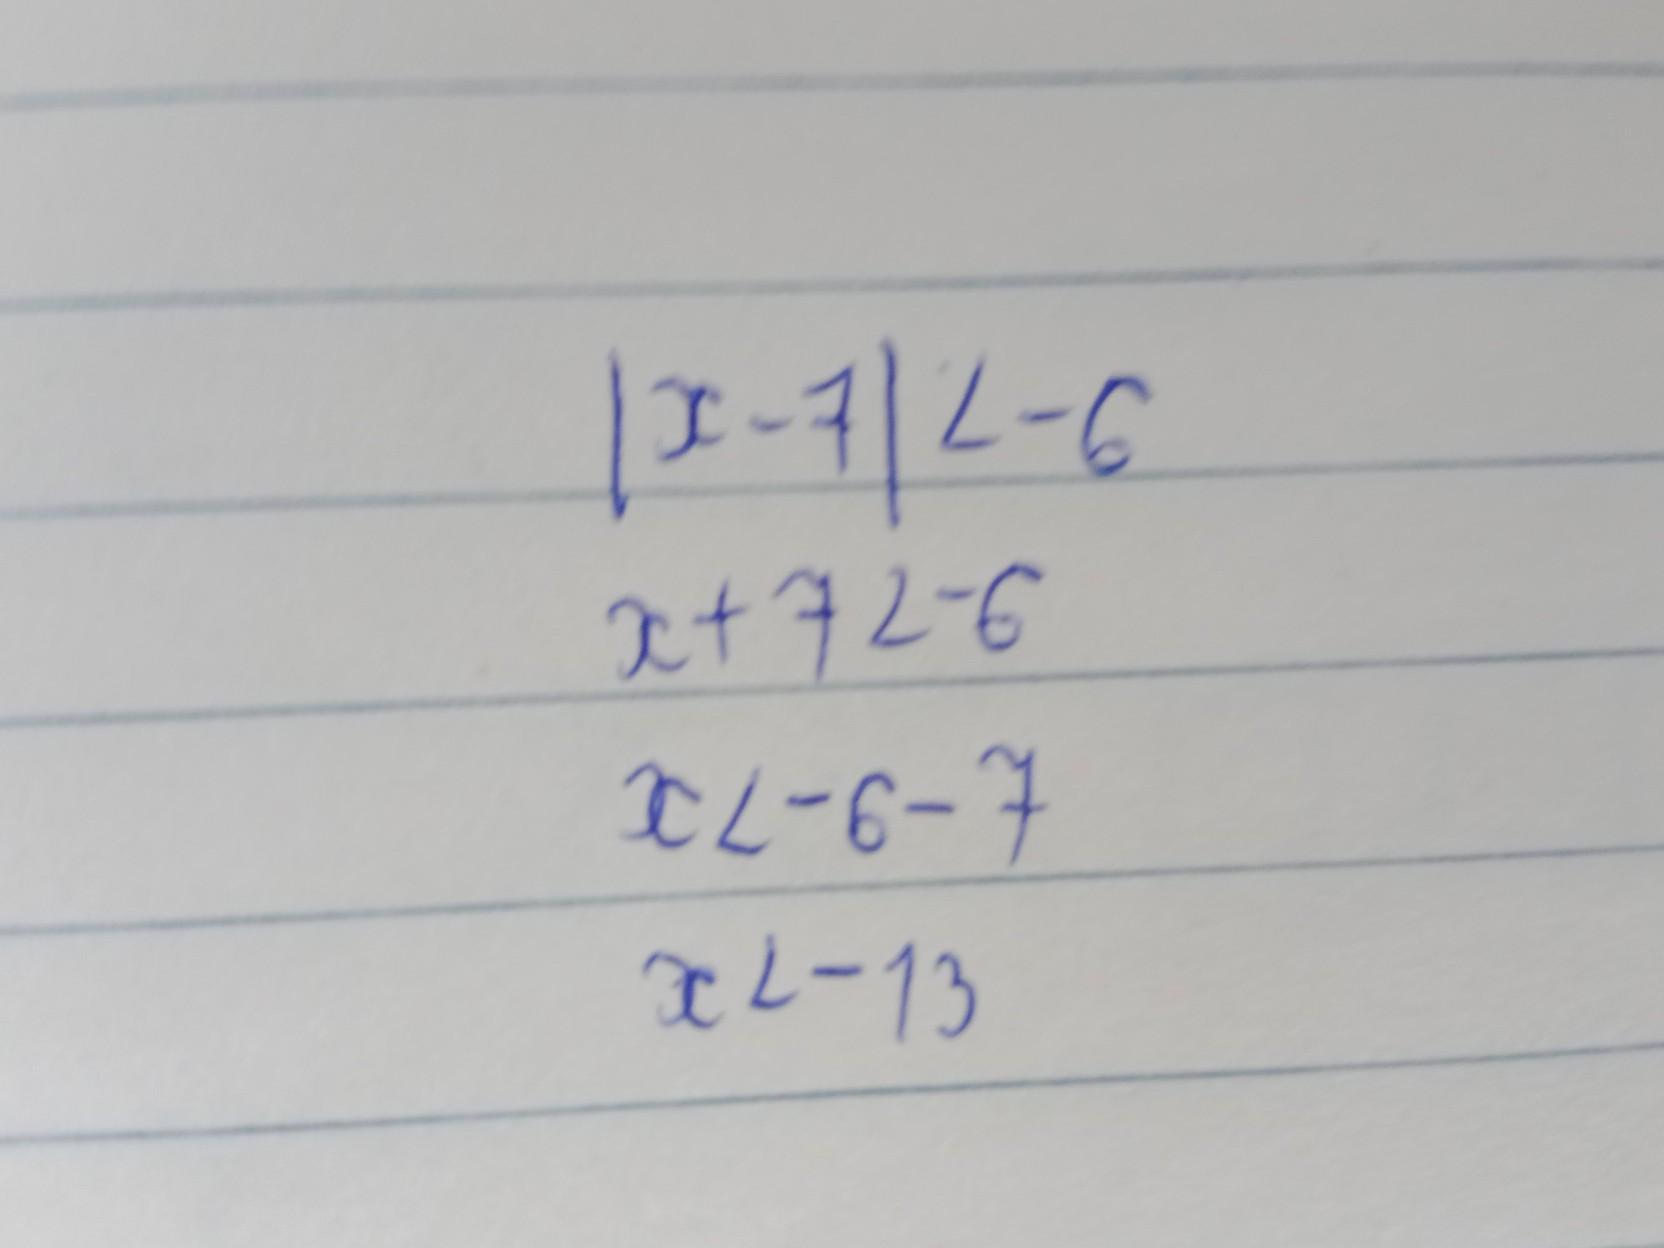 |x-7| < -6
x + 7 < -6
x < -6 - 7
x < -13